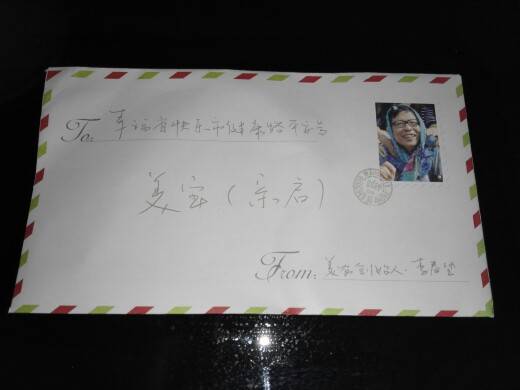 To: 幸福省快乐市健康路平安号
美宝（亲启）
From: 美宝创始人·李春